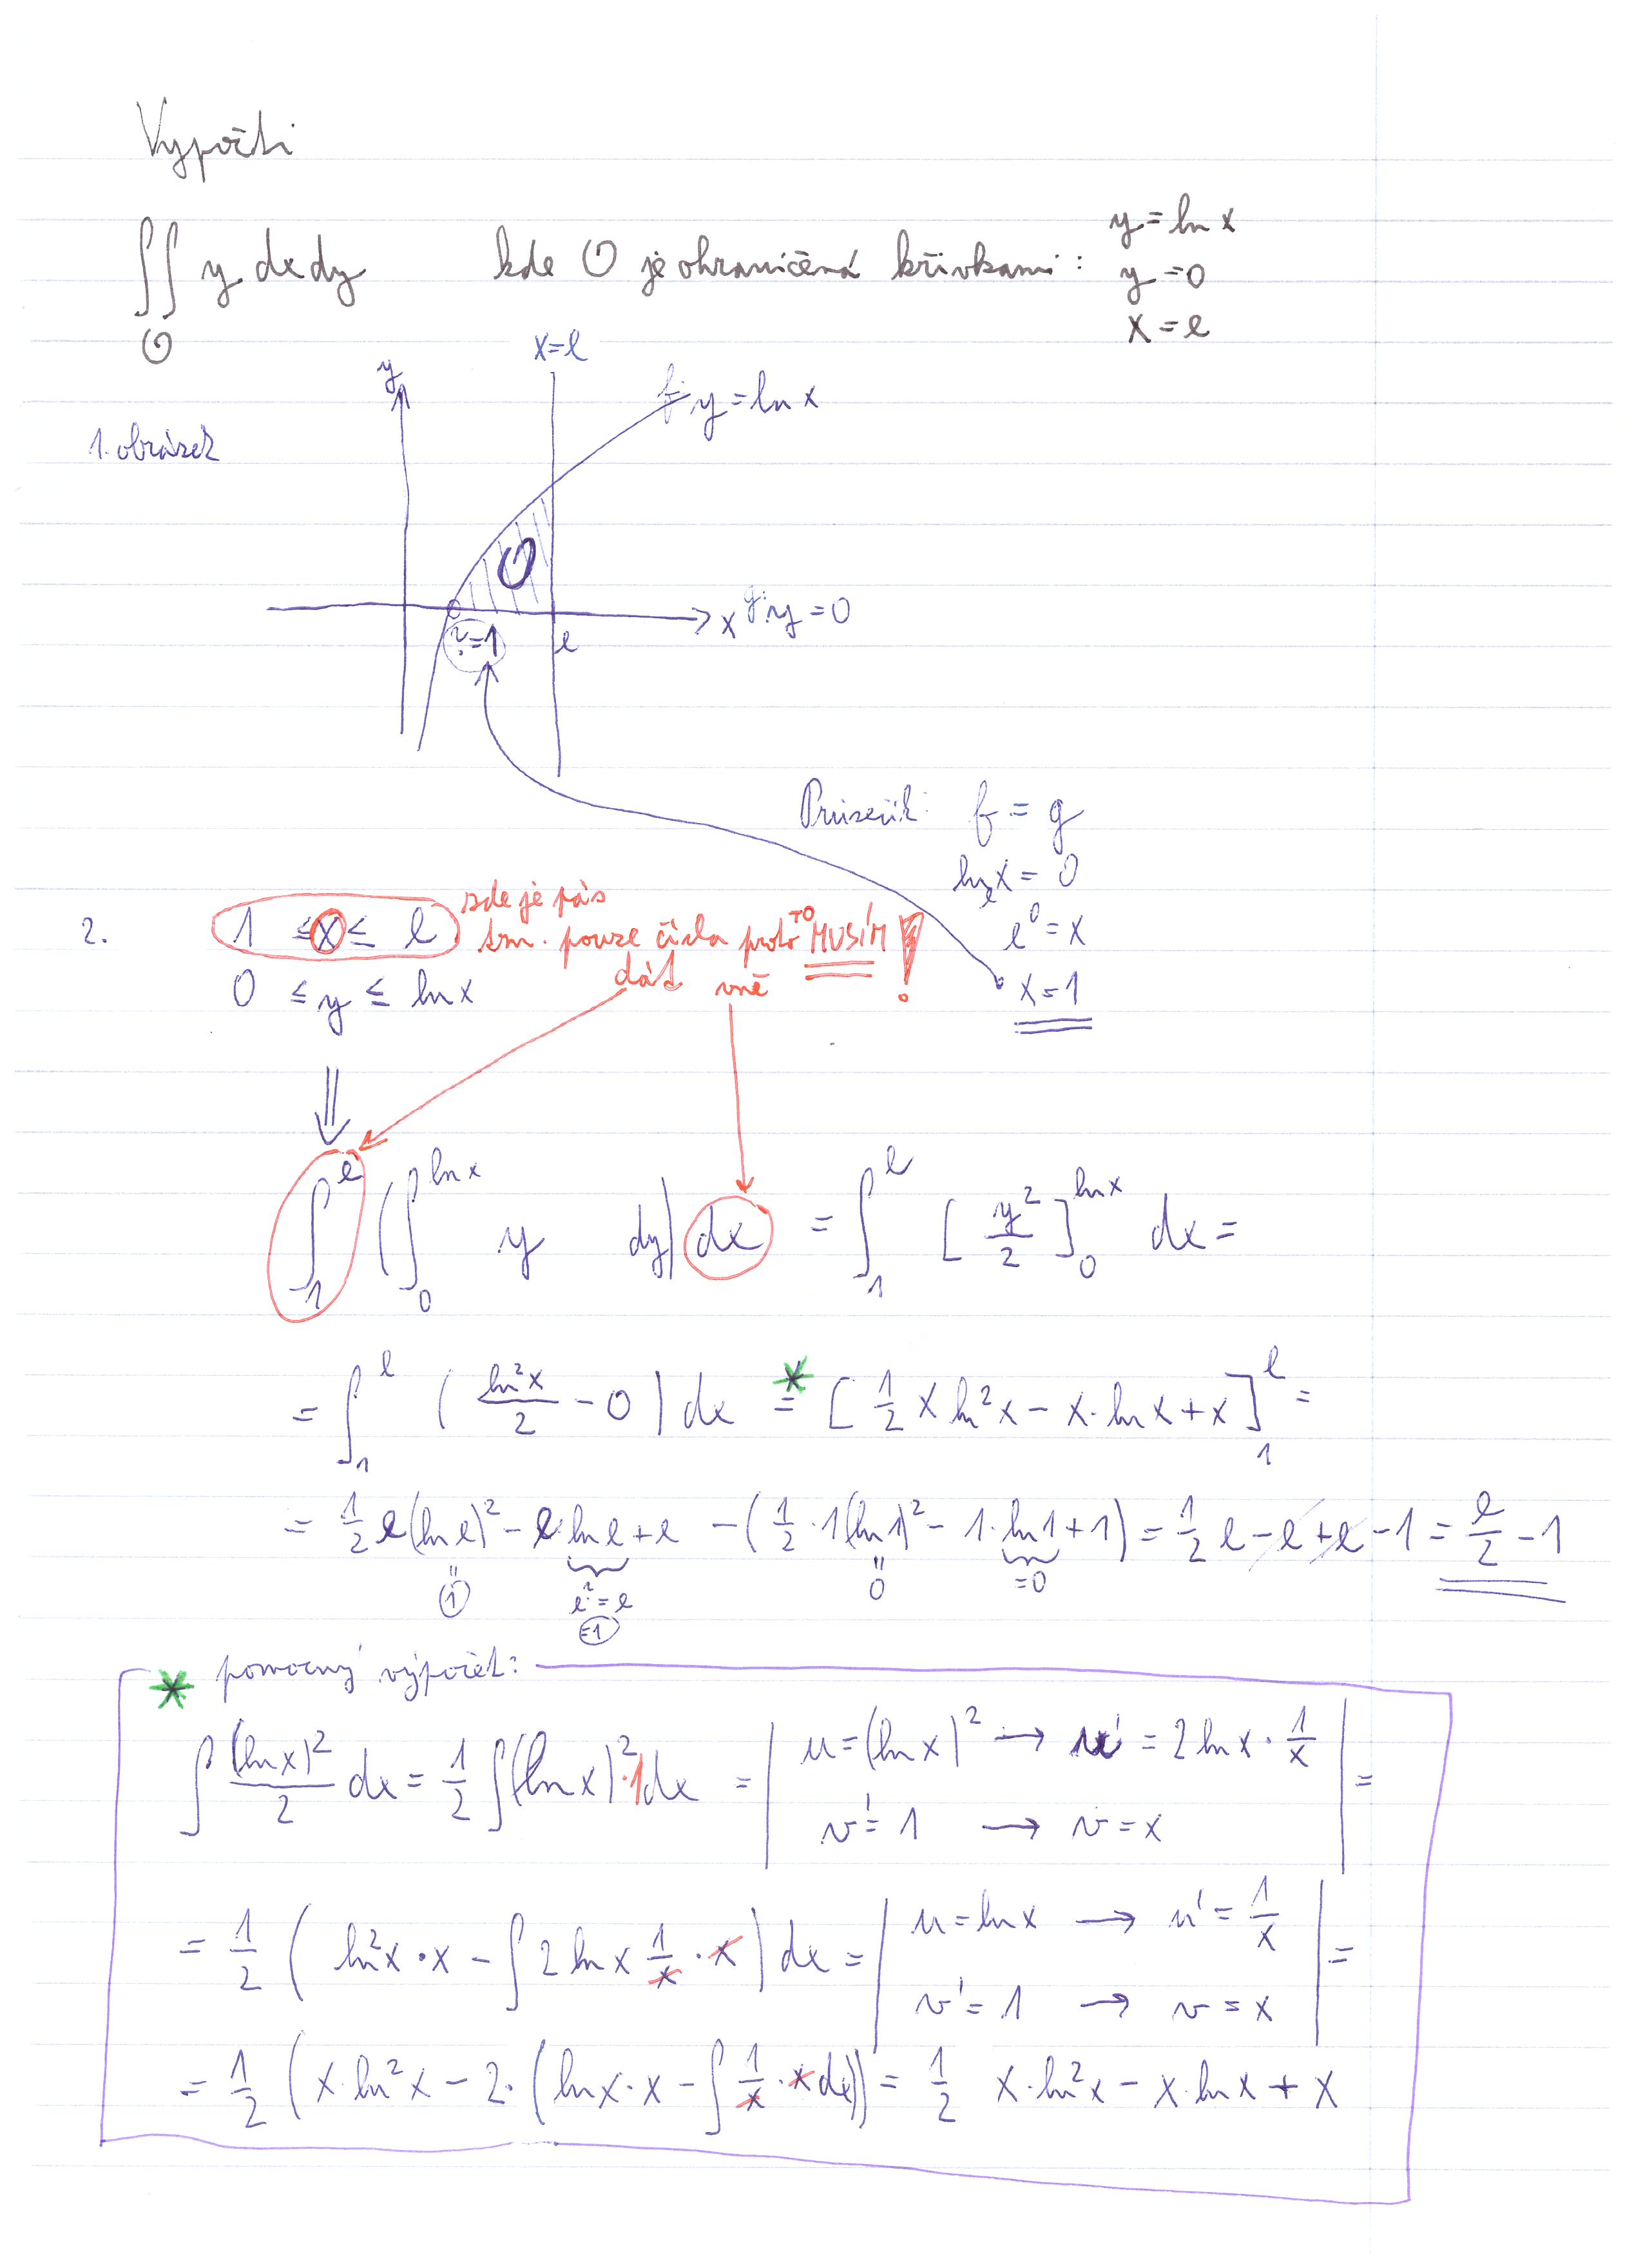 Vypočti
∬ y dx dy kde O je ohraničená křivkami: y = ln x
O
y = 0
x = e
1. obrázek
y
x = e
f: y = ln x
O
x g: y = 0
? = 1
e
Průsečík: f = g
ln_e x = 0
e^0 = x
x = 1
2. 1 ≤ x ≤ e
zde je pás
tzn. pouze čísla proto TO MUSÍM !
dát vně
0 ≤ y ≤ ln x
⇓
∫_1^e (∫_0^{ln x} y dy) dx = ∫_1^e [y²/2]_0^{ln x} dx =
= ∫_1^e (ln²x/2 - 0) dx =* [1/2 x ln²x - x·ln x + x]_1^e =
= 1/2 e(ln e)² - e·ln e + e - (1/2 · 1(ln 1)² - 1·ln 1 + 1) = 1/2 e - e + e - 1 = e/2 - 1
= 1
e^? = e
= 1
= 0
= 0
* pomocný výpočet:
∫ (ln x)²/2 dx = 1/2 ∫ (ln x)² · 1 dx = | u = (ln x)² → u' = 2 ln x · 1/x | =
v' = 1 → v = x
= 1/2 ( ln²x · x - ∫ 2 ln x 1/x · x ) dx = | u = ln x → u' = 1/x | =
v' = 1 → v = x
= 1/2 ( x·ln²x - 2·( ln x · x - ∫ 1/x · x dx)) = 1/2 x·ln²x - x·ln x + x